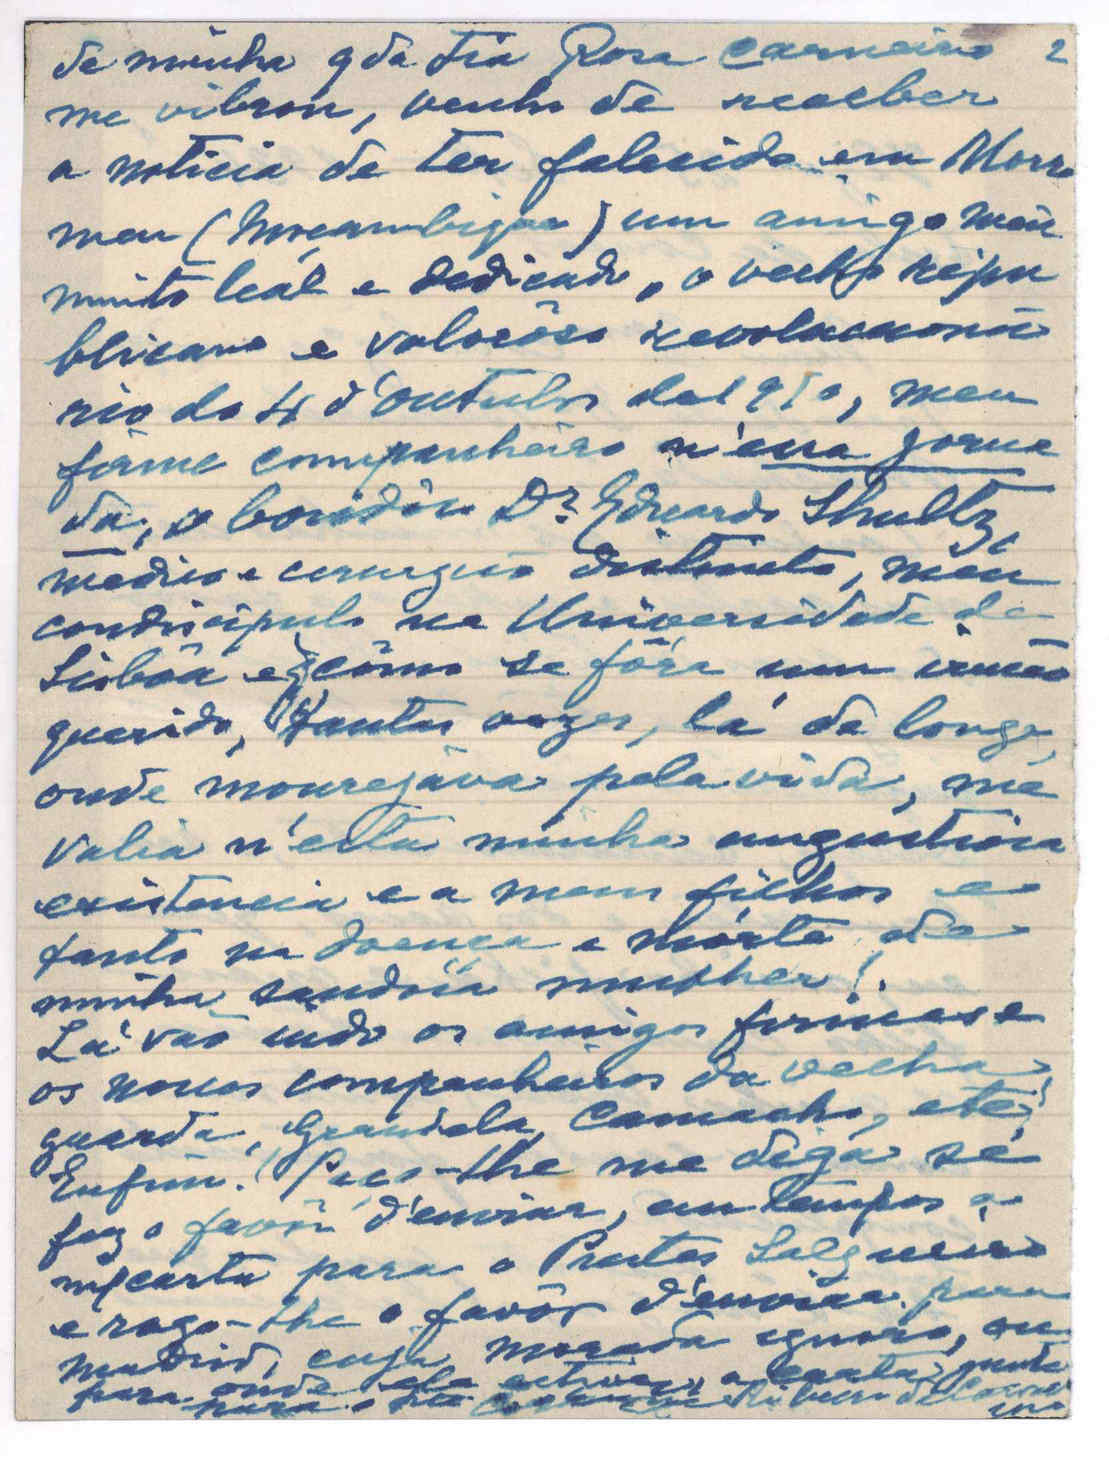 de minha qda tia Rosa Carneiro 2
me vibrou, venho de receber
a noticia de ter falecido em Morro
meu (Moçambique) um amigo meu
muito leal e dedicado, o velho repu
blicano e valorôso revolucioná
rio do 4 d'Outubro de 1910, meu
firme companheiro n'essa jorna
da, o bondôso Dr. Eduardo Shultz,
medico e cirurgião distinto, meu
condiscipulo na Universidade de
Lisbôa e, cômo se fôra um irmão
querido, tantas vezes, lá de longe,
onde mourejáva pela vida, me
valia n'esta minha angustiosa
existencia e a meus filhos e
tanto na doença e mórte de
minha saudósa mulher!
Lá vão indo os amigos firmes e
os nossos companheiros da velha
guarda, Grandela, Camacho, etc!
Enfim! Peço-lhe me diga se
fez o favôr d'enviar, em tempos a
m/carta para o Prates Salgueiro
e rogo-lhe o favôr d'enviar para
Madrid, cuja morada ignoro, ou
para onde ele estiver, a carta junta
para o Ribeiro de